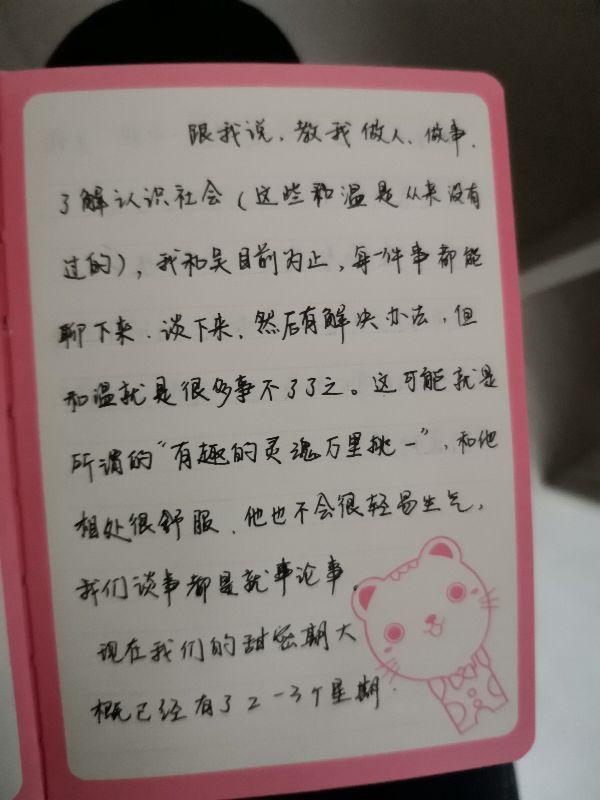 跟我说，教我做人、做事、
了解认识社会（这些和温是从来没有
过的），我和吴目前为止，每一件事都能
聊下来、谈下来，然后有解决办法，但
和温就是很多事不了了之。这可能就是
所谓的“有趣的灵魂万里挑一”，和他
相处很舒服，他也不会很轻易生气，
我们谈事都是就事论事，
现在我们的甜密期大
概已经有了2-3个星期.